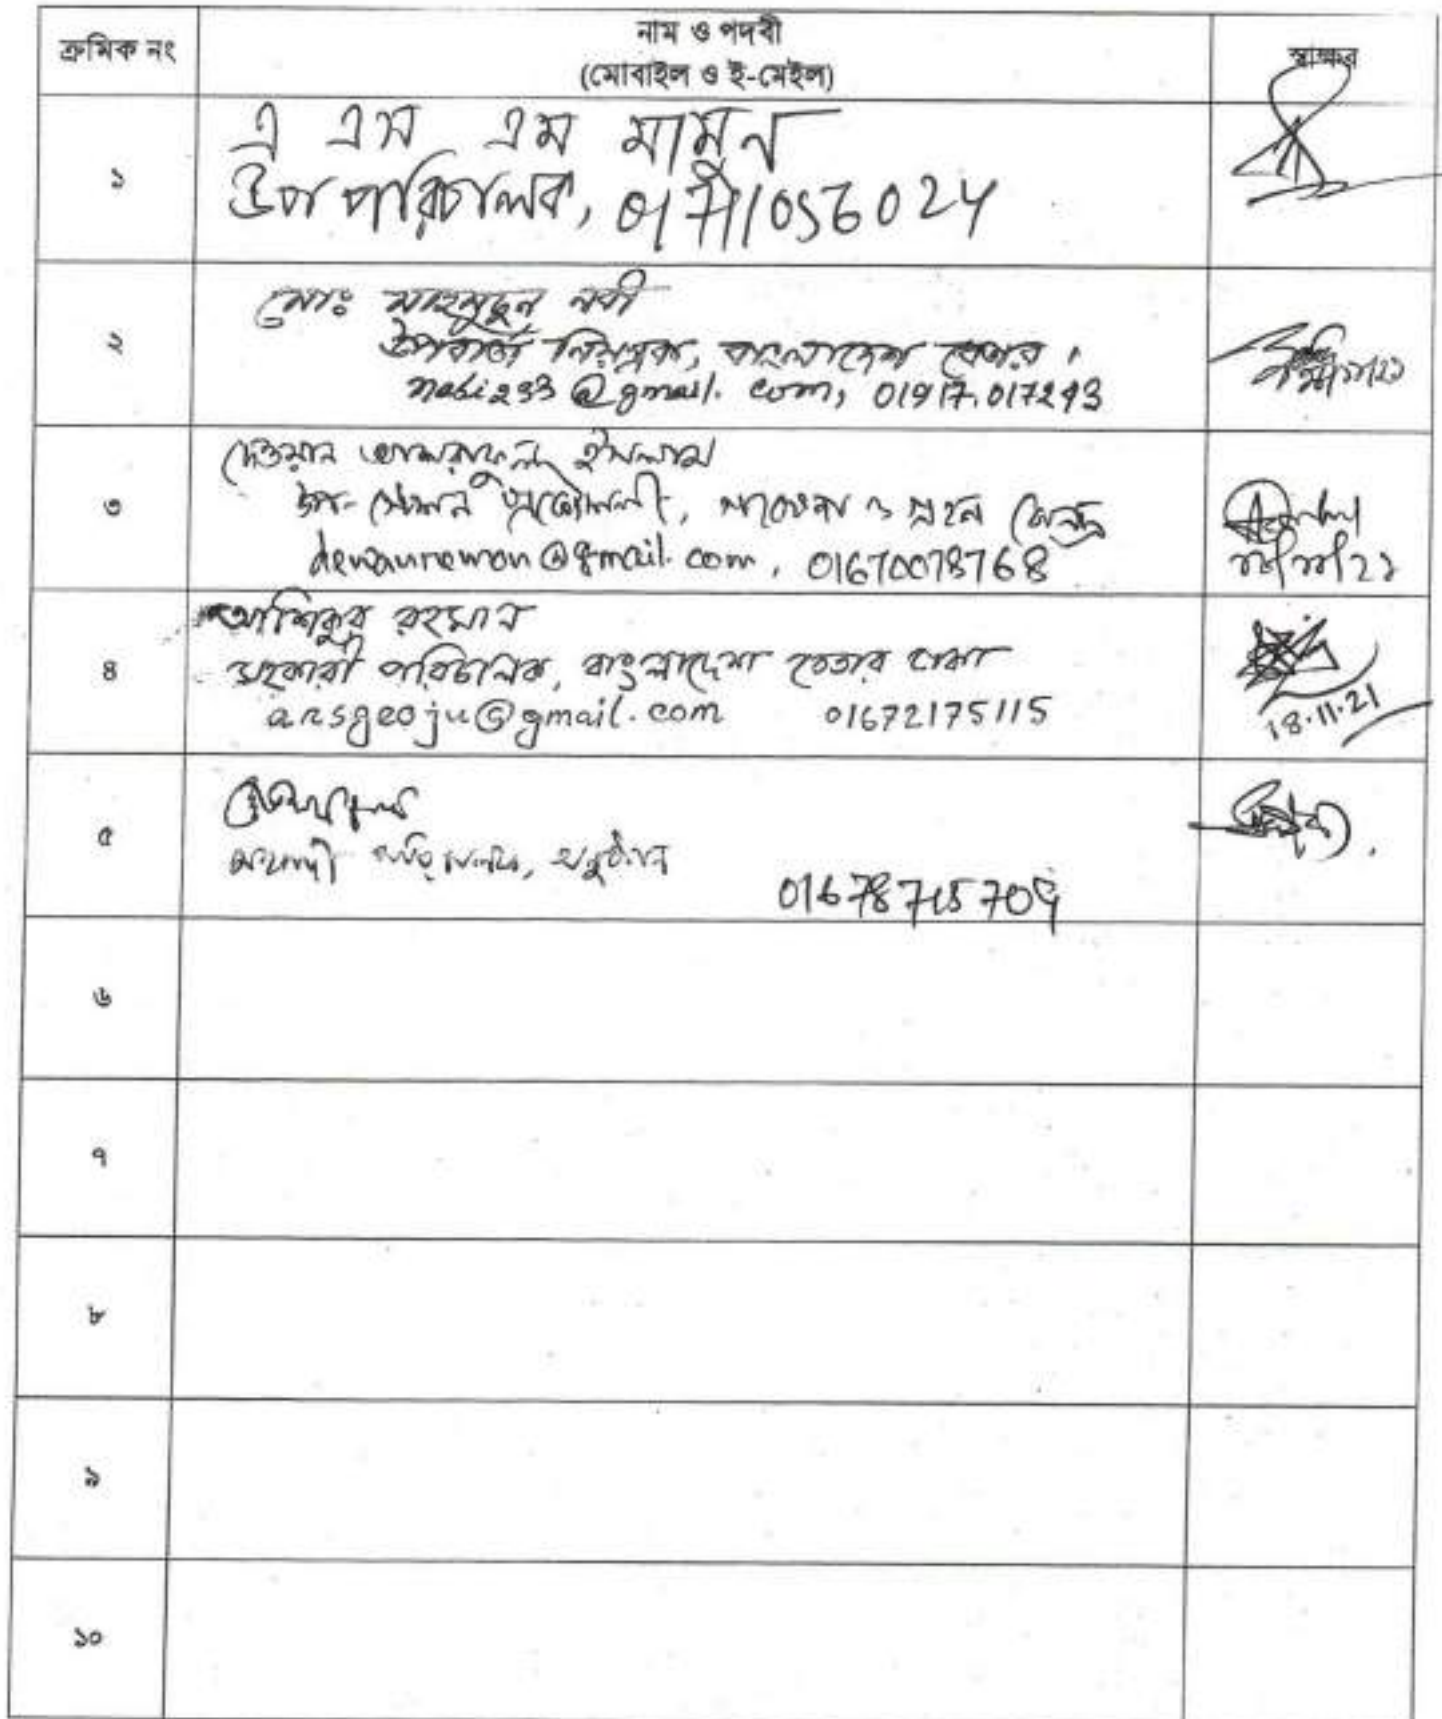 ক্রমিক নং
নাম ও পদবী
(মোবাইল ও ই-মেইল)
স্বাক্ষর
১
এ এস এম মামুন
উপ পরিচালক, 01711056024
২
মোঃ মাহমুদুন নবী
উপবার্তা নিয়ন্ত্রক, বাংলাদেশ বেতার।
nabi293@gmail.com, 01917.017293
৩
দেওয়ান আশরাফুল ইসলাম
উপ-স্টেশন প্রকৌশলী, গবেষণা ও গ্রহন কেন্দ্র
dewanremon@gmail.com, 01670078768
৪
আশিকুর রহমান
সহকারী পরিচালক, বাংলাদেশ বেতার ঢাকা
arsgeoju@gmail.com 01672175115
18.11.21
৫
সহকারী পরিচালক, অনুষ্ঠান
৬
৭
৮
৯
১০